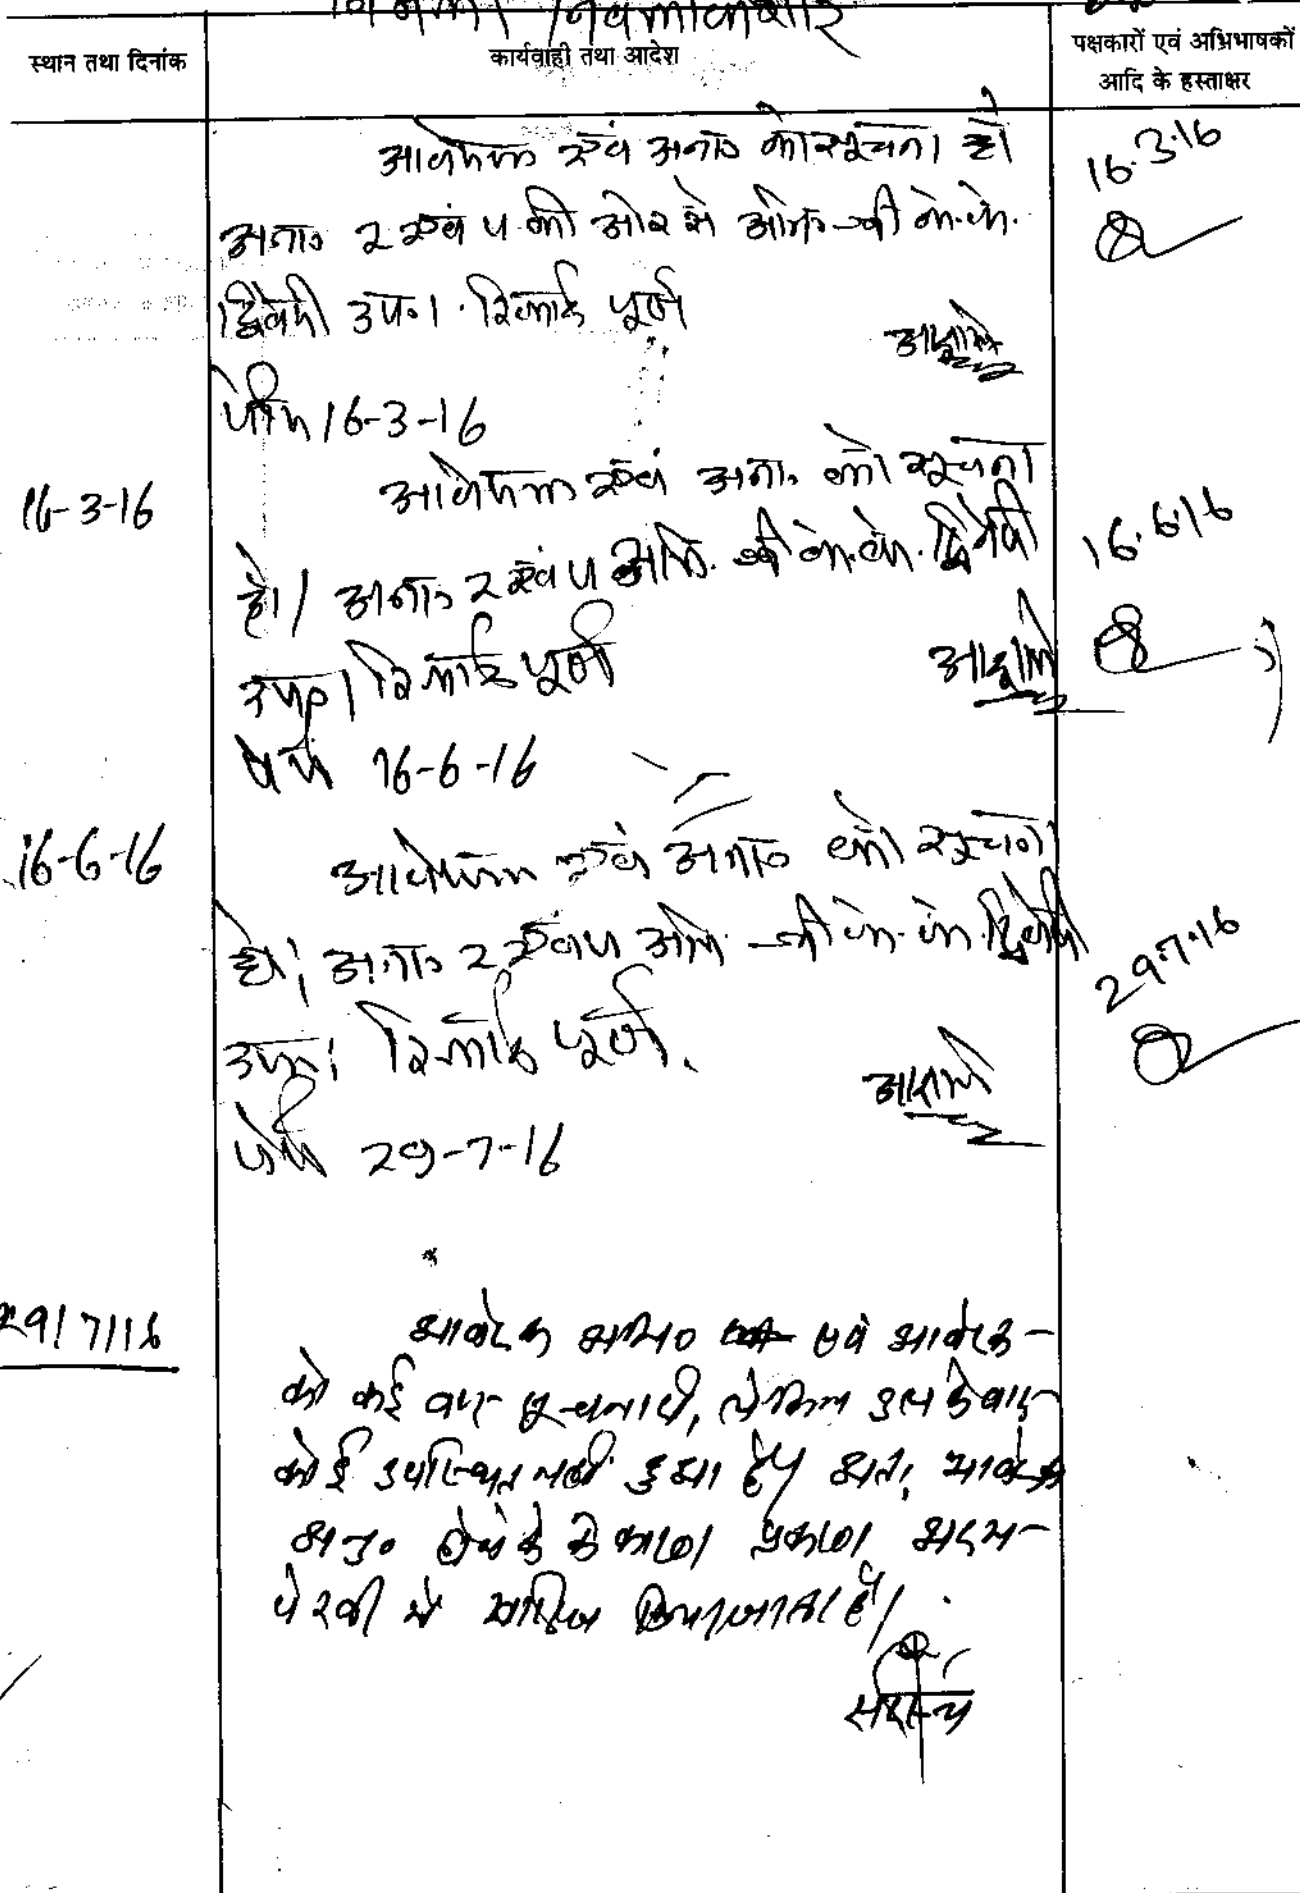 स्थान तथा दिनांक
कार्यवाही तथा आदेश
पक्षकारों एवं अभिभाषकों
आदि के हस्ताक्षर
आवेदक एवं अना० को सूचना हो
16.3.16
अना० 2 एवं 4 की ओर से अभि० श्री के.के.
द्विवेदी उप०। रिकार्ड पूर्ण
पेशी 16-3-16
16-3-16
आवेदक एवं अना० को सूचना
हो। अना० 2 एवं 4 अभि. श्री के.के. द्विवेदी
16.6.16
उप०। रिकार्ड पूर्ण
पेशी 16-6-16
16-6-16
आवेदक एवं अना० को सूचना
हो। अना० 2 एवं 4 अभि. श्री के.के. द्विवेदी
29.7.16
उप०। रिकार्ड पूर्ण.
पेशी 29-7-16
29/7/16
आवेदक एवं आवेदक
को कई बार सूचना दी, लेकिन उसके बाद
कोई उपस्थित नहीं हुआ है। अतः आवेदक
अनु० होने के कारण प्रकरण अदम
पैरवी में खारिज किया जाता है।
सदस्य